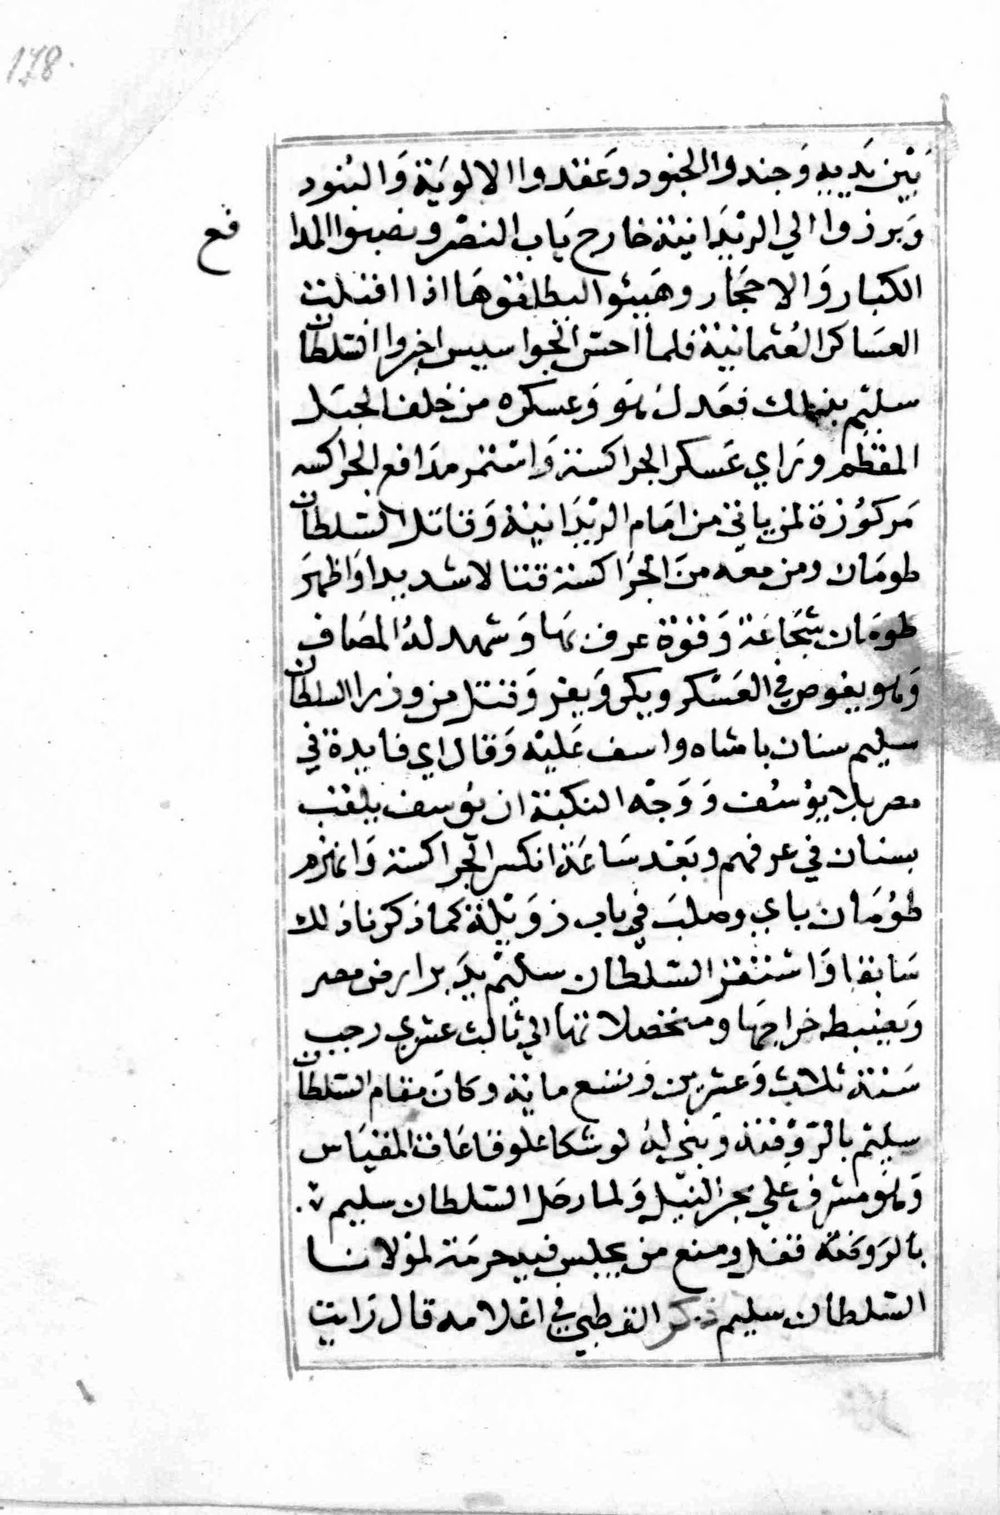 178.
بَيْن يَديه وَجندوا الجنود وَعقدوا الالويَة وَالبُنود
وَبرزوا الي الريْدَانيَة خارج بَاب النصْر ونصبوا المدا
فع
الكبار وَالاحجَار وهَيئوا ليطلقوهَا اذا اقبلت
العسَاكر العُثمانيَة فلما احسّ الجواسيس اخبروا السّلطان
سليْم بذلك فعَدل هوَ وَعسكره من خلف الجبَل
المقطَم وتراي عَسكر الجراكسة وَاستمر مدَافع الجراكسه
مَركوُزة لمن ياتي من امَام الريْدَانيَة وَقاتل السّلطان
طومَان ومن معه منَ الجرَاكسة قتالا شديدا وَاظهرَ
طومَان شجَاعَة وَقوَة عرف بهَا وَشهد لهُ المصَاف
وَهو يغوص في العَسْكر ويكر وَيفر وَقتل من وزرا السلطان
سليم سنان باشاه واسف عَليْه وَقال اي فايدة في
مصر بلا يوُسُف وَوَجْه النكتة ان يوُسف يلقب
بسنان في عرفهم وبَعْد سَاعَة انكسر الجراكسة وَانهزم
طوُمَان باي وصلبَ في باب زوَيْلة كما ذكرنا ذلك
سَابقا وَاستقر السّلطان سليْم يدَبر ارض مصر
وَيضبط خراجهَا ومتحصلاتها الي ثالث عشري رجب
سَنة ثلاث وَعشرين وتسع ماية وكانَ مقام السّلطان
سليْم بالرّوْضة وَبني لهُ كوشكا علو قاعَة المقيَاس
وَهوَ مشرف علي بحر النيْل وَلما رحل السّلطان سليم
بالرَوضَة قفل ومنع من يجلس فيه حرمَة لموْلانا
السّلطان سليم ذكر القطبي في اعْلامه قال رَايت